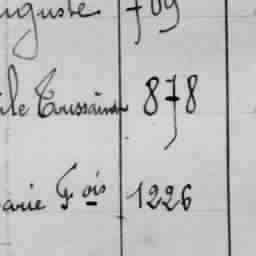 Auguste 709
ile Toussaint 878
arie Fois 1226